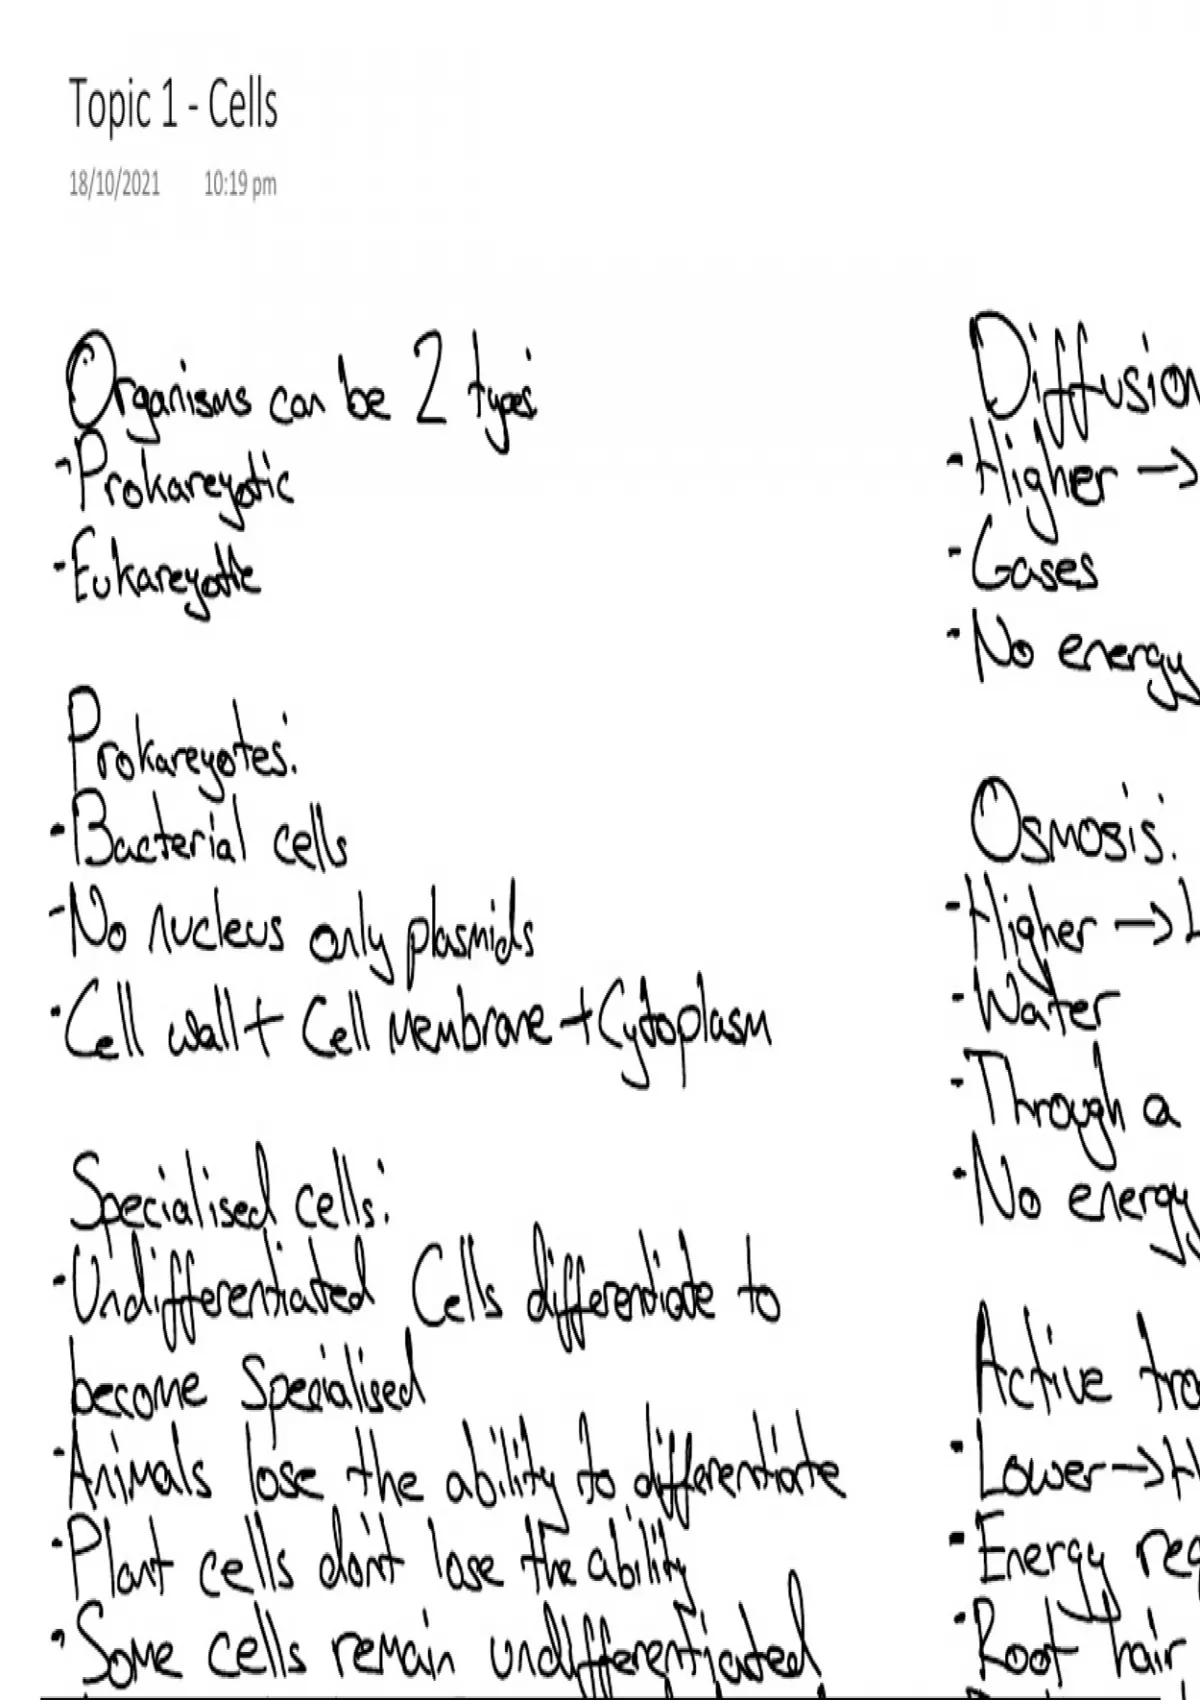 Topic 1 - Cells
18/10/2021 10:19 pm
Organisms can be 2 types:
- Prokareyotic
- Eukareyotic
Prokareyotes:
- Bacterial cells
- No nucleus only plasmids
- Cell wall + Cell Membrane + Cytoplasm
Specialised cells:
- Undifferentiated Cells differentiate to
become Specialised
- Animals lose the ability to differentiate
- Plant cells don't lose the ability
- Some cells remain undifferentiated
Diffusion
- Higher →
- Gases
- No energy
Osmosis:
- Higher → L
- Water
- Through a
- No energy
Active tra
- Lower → H
- Energy req
- Root hair